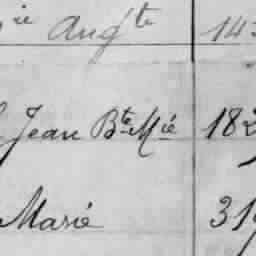 ie Augte 143
Jean Bte Mie 182
Marie 319